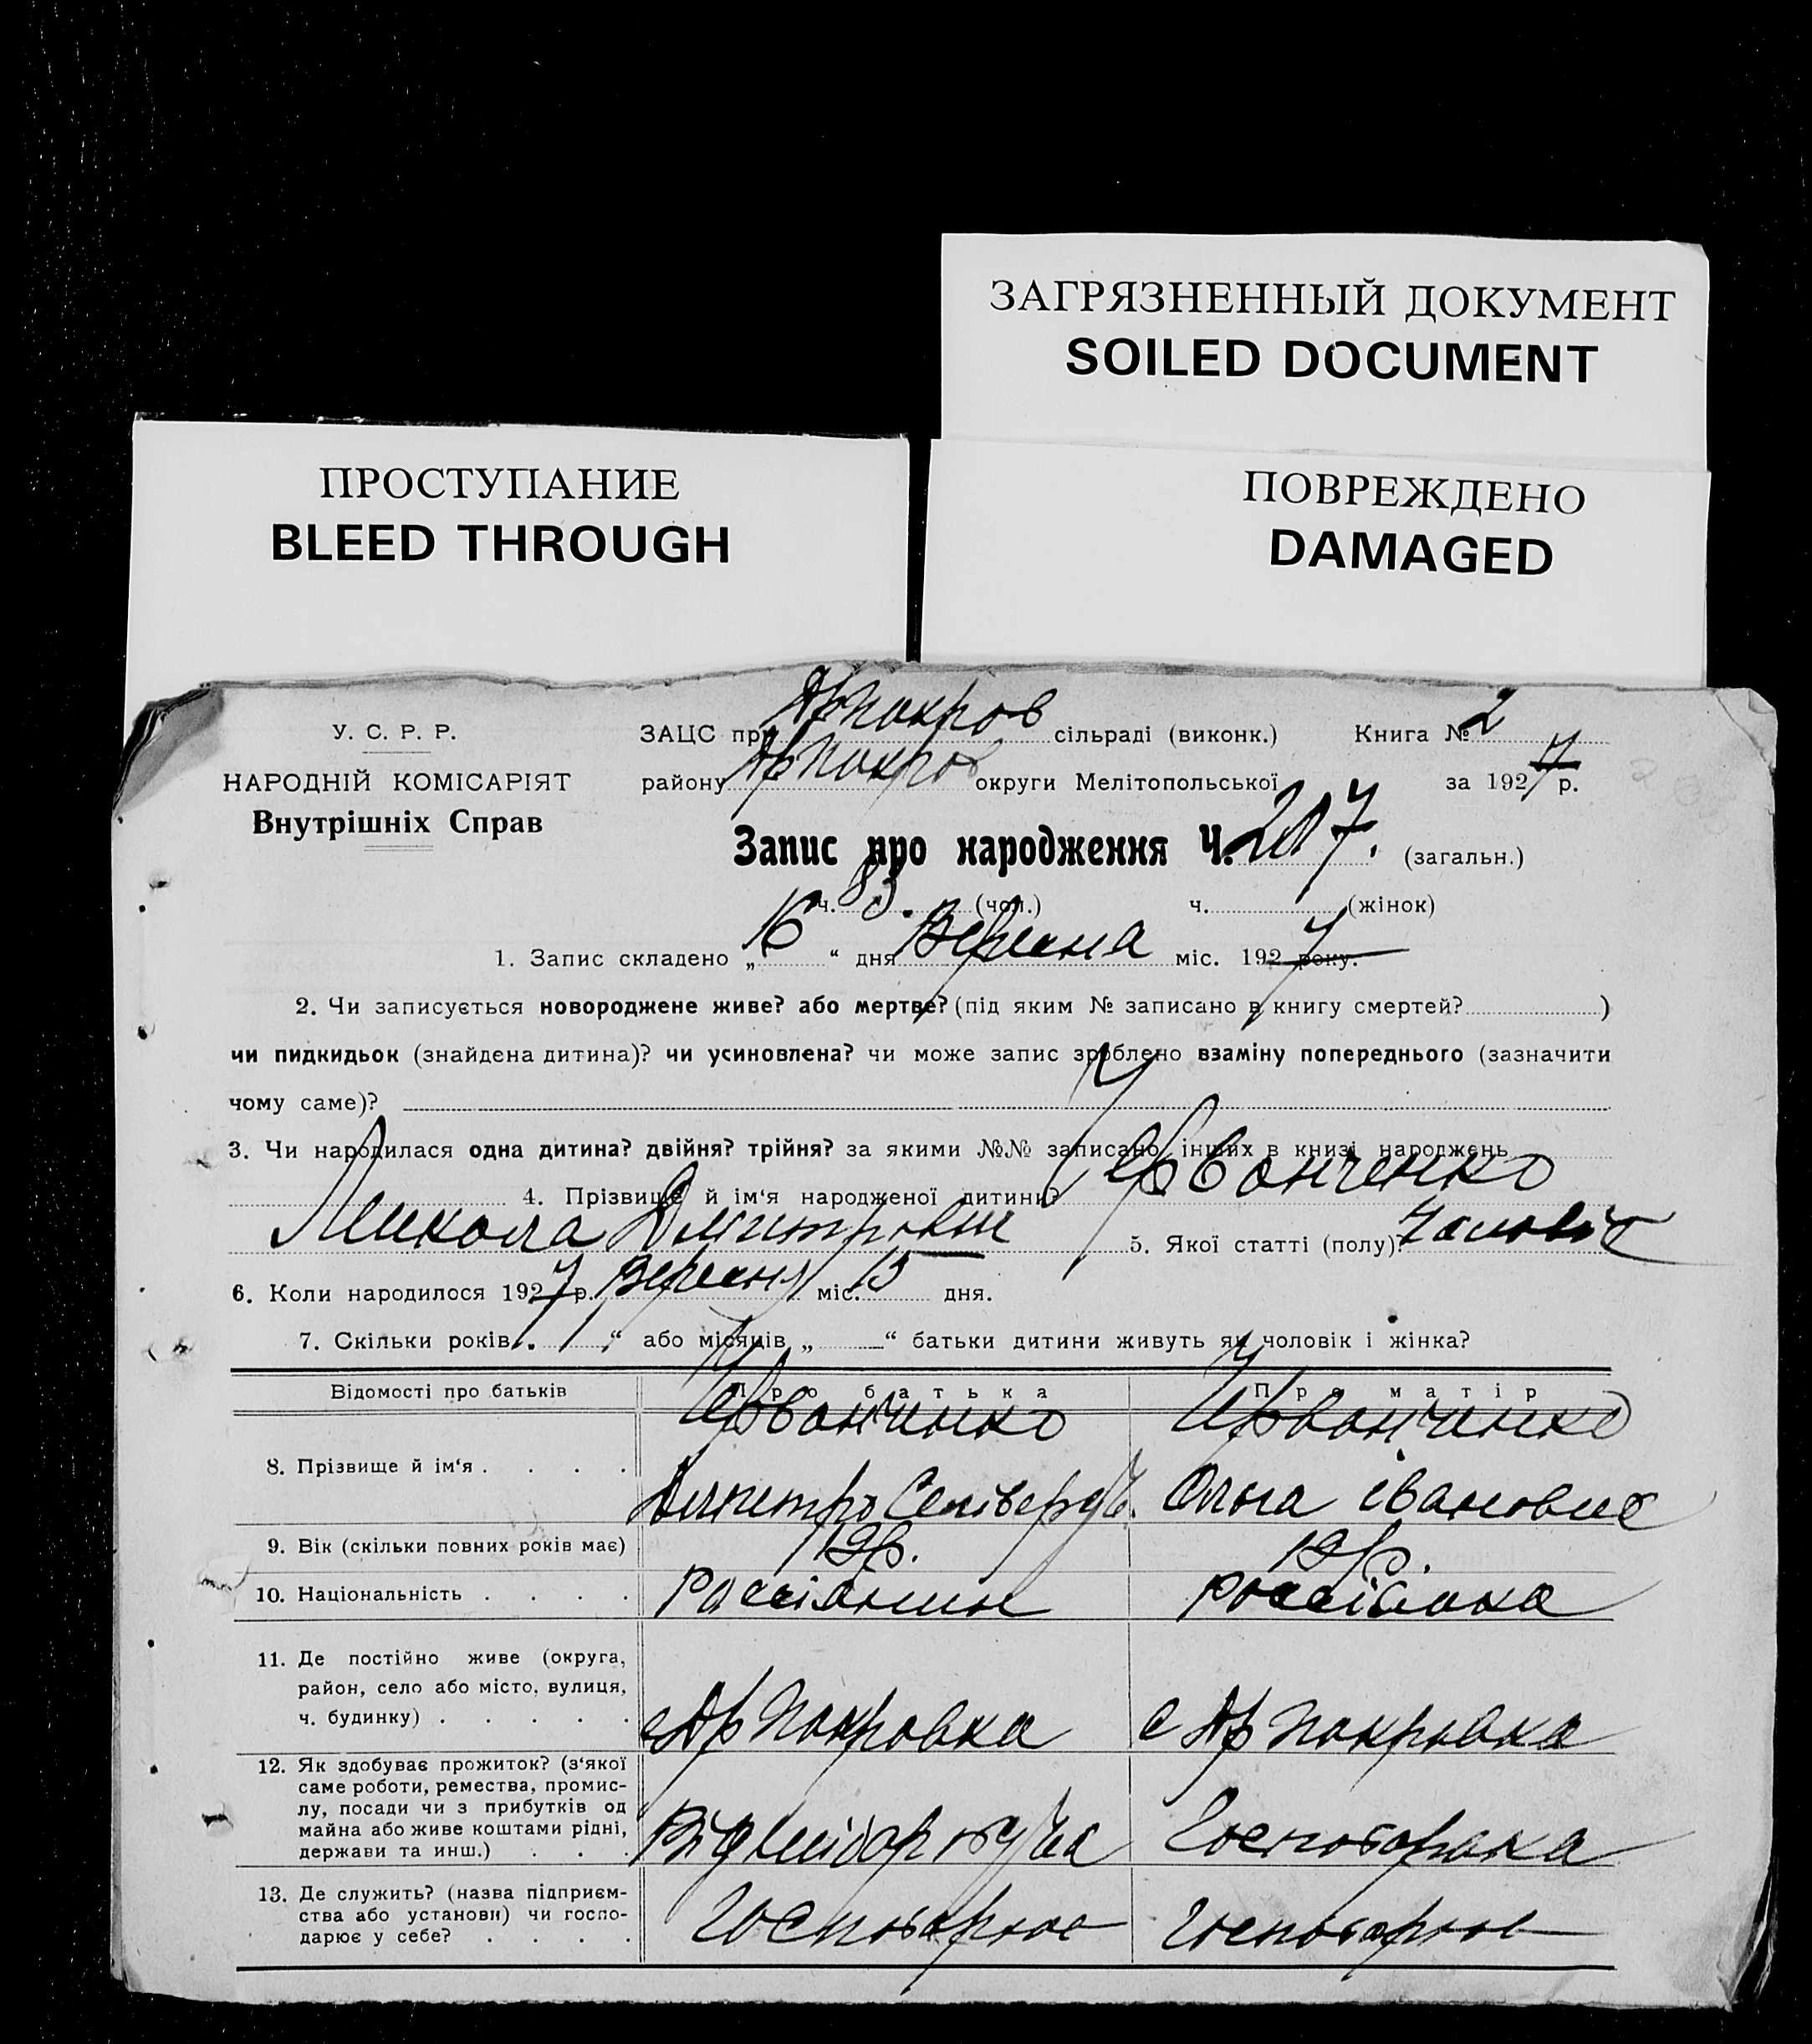 ЗАГРЯЗНЕННЫЙ ДОКУМЕНТ
SOILED DOCUMENT
ПРОСТУПАНИЕ
BLEED THROUGH
ПОВРЕЖДЕНО
DAMAGED
У. С. Р. Р.
НАРОДНІЙ КОМІСАРІЯТ
Внутрішніх Справ
ЗАЦС при Ар Покров сільраді (виконк.) Книга № 2
району Ар Покров округи Мелітопольської за 1927 р.
Запис про народження Ч. 207. (загальн.)
ч. 83. (чол.) ч. (жінок)
1. Запис складено „16“ дня Вересня міс. 1927 року.
2. Чи записується новороджене живе? або мертве? (під яким № записано в книгу смертей? )
чи пидкидьок (знайдена дитина)? чи усиновлена? чи може запис зроблено взаміну попереднього (зазначити
чому саме)?
3. Чи народилася одна дитина? двійня? трійня? за якими №№ записано інших в книзі народжень
4. Прізвище й ім‘я народженої дитини? Черванченко
Микола Дмитрович 5. Якої статті (полу)? Чоловіч
6. Коли народилося 1927 р. Вересня міс. 15 дня.
7. Скільки років „1“ або місяців „ “ батьки дитини живуть як чоловік і жінка?
Відомості про батьків Про батька Про матір
8. Прізвище й ім‘я . . . . Черванченко Черванченко
Дмитро Селівер Ольга Івановна
9. Вік (скільки повних років має) 19 р. 19 р.
10. Національність . . . . Россіянин россіянка
11. Де постійно живе (округа,
район, село або місто, вулиця,
ч. будинку) . . . . . с Ар Покровка с Ар Покровка
12. Як здобуває прожиток? (з‘якої
саме роботи, ремества, промис-
лу, посади чи з прибутків од
майна або живе коштами рідні,
держави та инш.) . . . Господарка
13. Де служить? (назва підприєм-
ства або установи) чи госпо-
дарює у себе? . . . . Господарює господарює